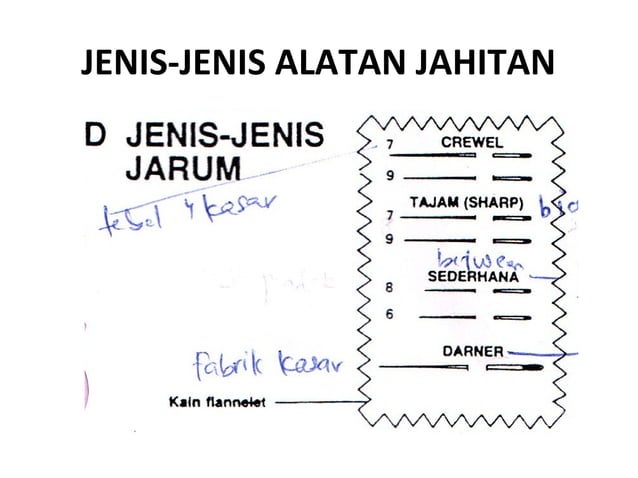 JENIS-JENIS ALATAN JAHITAN
D JENIS-JENIS
JARUM
tebal & kasar
7 CREWEL
9
TAJAM (SHARP)
7
9
between
SEDERHANA
8
6
DARNER
fabrik kasar
Kain flannelet